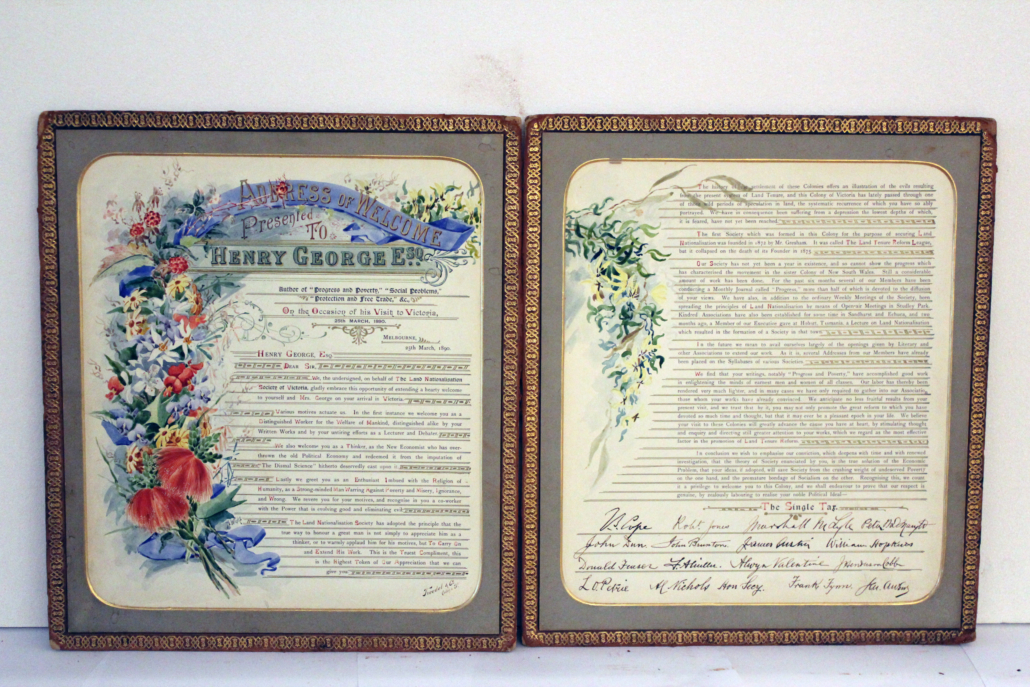 ADDRESS OF WELCOME
Presented
TO
HENRY GEORGE ESQ.
Author of "Progress and Poverty," "Social Problems,"
"Protection and Free Trade," &c.,
On the Occasion of his Visit to Victoria,
25th MARCH, 1890.
MELBOURNE,
25th March, 1890.
HENRY GEORGE, Esq
DEAR SIR,
We, the undersigned, on behalf of The Land Nationalization
Society of Victoria, gladly embrace this opportunity of extending a hearty welcome
to yourself and Mrs. George on your arrival in Victoria.
Various motives actuate us. In the first instance we welcome you as a
Distinguished Worker for the Welfare of Mankind, distinguished alike by your
Written Works and by your untiring efforts as a Lecturer and Debater.
We also welcome you as a Thinker, as the New Economist who has over-
thrown the old Political Economy and redeemed it from the imputation of
"The Dismal Science" hitherto deservedly cast upon it
Lastly we greet you as an Enthusiast Imbued with the Religion of
Humanity, as a Strong-minded Man Warring Against Poverty and Misery, Ignorance,
and Wrong. We revere you for your motives, and recognise in you a co-worker
with the Power that is evolving good and eliminating evil
The Land Nationalisation Society has adopted the principle that the
true way to honour a great man is not simply to appreciate him as a
thinker, or to warmly applaud him for his motives, but To Carry On
and Extend His Work. This is the Truest Compliment, this
is the Highest Token of Our Appreciation that we can
give you
The history of the settlement of these Colonies offers an illustration of the evils resulting
from the present system of Land Tenure, and this Colony of Victoria has lately passed through one
of those wild periods of speculation in land, the systematic recurrence of which you have so ably
portrayed. We have in consequence been suffering from a depression the lowest depths of which,
it is feared, have not yet been reached
The first Society which was formed in this Colony for the purpose of securing Land
Nationalisation was founded in 1872 by Mr. Gresham. It was called The Land Tenure Reform League,
but it collapsed on the death of its Founder in 1875
Our Society has not yet been a year in existence, and so cannot show the progress which
has characterised the movement in the sister Colony of New South Wales. Still a considerable
amount of work has been done. For the past six months several of our Members have been
conducting a Monthly Journal called "Progress," more than half of which is devoted to the diffusion
of your views. We have also, in addition to the ordinary Weekly Meetings of the Society, been
spreading the principles of Land Nationalization by means of Open-air Meetings in Studley Park,
Kindred Associations have also been established for some time in Sandhurst and Echuca, and two
months ago, a Member of our Executive gave at Hobart, Tasmania, a Lecture on Land Nationalization
which resulted in the formation of a Society in that town
In the future we mean to avail ourselves largely of the openings given by Literary and
other Associations to extend our work. As it is, several Addresses from our Members have already
been placed on the Syllabuses of various Societies
We find that your writings, notably "Progress and Poverty," have accomplished good work
in enlightening the minds of earnest men and women of all classes. Our labor has thereby been
rendered very much lighter, and in many cases we have only required to gather into our Association,
those whom your works have already convinced. We anticipate no less fruitful results from your
present visit, and we trust that by it, you may not only promote the great reform to which you have
devoted so much time and thought, but that it may ever be a pleasant epoch in your life. We believe
your visit to these Colonies will greatly advance the cause you have at heart, by stimulating thought
and enquiry and directing still greater attention to your works, which we regard as the most effective
factor in the promotion of Land Tenure Reform
In conclusion we wish to emphasise our conviction, which deepens with time and with renewed
investigation, that the theory of Society enunciated by you, is the true solution of the Economic
Problem, that your ideas if adopted, will save Society from the crushing weight of undeserved Poverty
on the one hand, and the premature bondage of Socialism on the other. Recognising this, we count
it a privilege to welcome you to this Colony, and we shall endeavour to prove that our respect is
genuine, by zealously labouring to realise your noble Political Ideal—
The Single Tax.
Robt Jones Marshall McLyle
John Gunn John Brunstone William Hopkins
Alwyn Valentine
M Nichols Frank Flynn